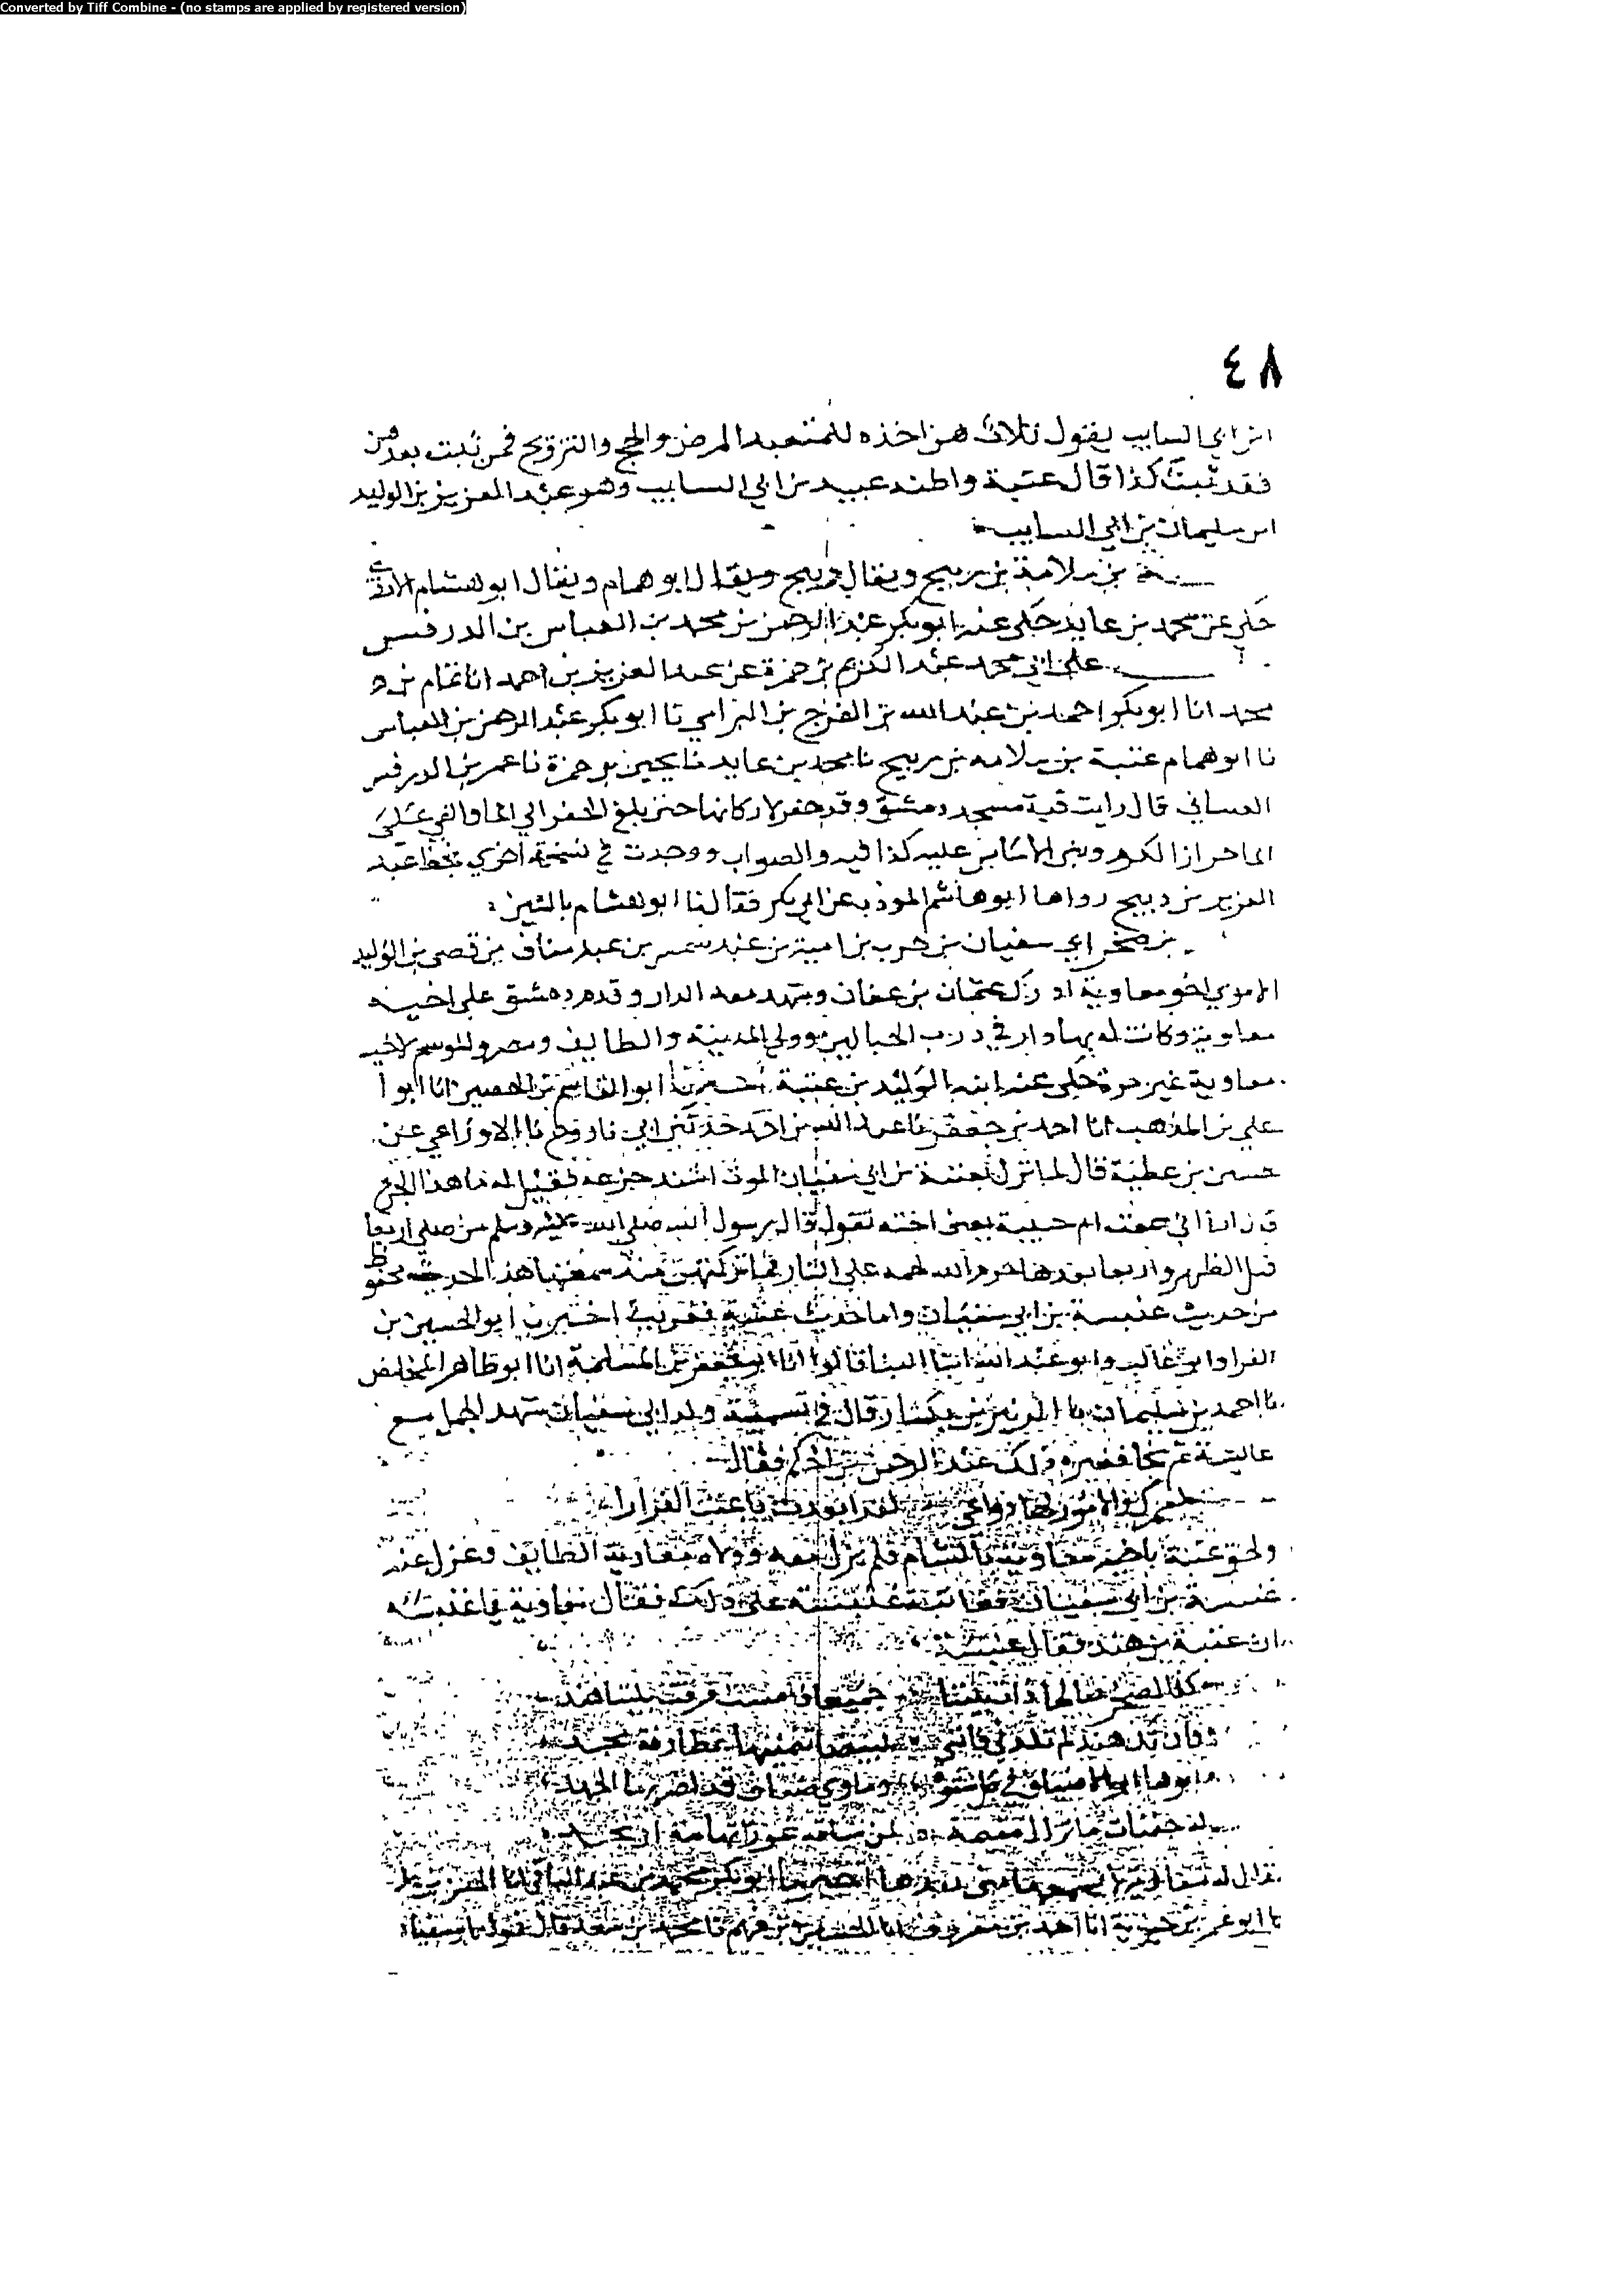 Converted by Tiff Combine - (no stamps are applied by registered version)
٤٨
ابن ابي السايب يقول ثلاث هن اخذه للمتعبد المرض والحج والتزويج فمن ثبت بعدهن
فقد ثبت كذا قال عتبة واظنه عبيد بن ابي السايب وهو عبد العزيز بن الوليد
ابن سليمان بن ابي السايب
بن سلامة بن ربيح ويقال دبيج ويقال ابو همام ويقال ابو هشام الاذني
حكى عن محمد بن عايذ حكى عنه ابو بكر عبد الرحمن بن محمد بن العباس بن الدرفس
على ابي محمد عبد الكريم بن حمزة عن عبد العزيز بن احمد انا تمام بن
محمد انا ابو بكر احمد بن عبد الله بن الفرج بن البرامي نا ابو بكر عبد الرحمن بن العباس
نا ابو همام عتبة بن سلامه بن ربيح نا محمد بن عايد نا يحيى بن حمزة نا عمر بن الدرفس
الغساني قال رايت قبة مسجد دمشق وقد حفر لاركانها حتى بلغ الحفر الى الما والقي على
الما جرازا الكرم وبني الاساس عليه كذا فيه والصواب ووجدت في نسخة اخرى بخط عبد
العزيز بن دبيج رواها ابو هاشم المودب عن ابي بكر فقال نا ابو هشام بالشين
بن صخر ابي سفيان بن حرب بن امية بن عبد شمس بن عبد مناف بن قصي بن الوليد
الاموي اخو معاوية ادرك عثمان بن عفان وشهد معه الدار وقدم دمشق على اخيه
معاوية وكانت له بها دار في درب الحبالين وولي المدينة والطايف ومصر والموسم لاخيه
معاوية غير مرة حكى عنه ابنه الوليد بن عتبة اخبرنا ابو القاسم بن الحصين انا ابو
علي بن المذهب انا احمد بن جعفر نا عبد الله بن احمد حدثني ابي نا روح نا الاوزاعي عن
حسن بن عطية قال لما نزل بعتبة بن ابي سفيان الموت اشتد جزعه فقيل له ما هذا الجزع
قال اما اني سمعت ام حبيبة يعني اخته تقول قال رسول الله صلى الله عليه وسلم من صلى اربعا
قبل الظهر واربعا بعدها حرم الله لحمه على النار فما تركتهن منذ سمعتها هذا الحديث محفوظ
من حديث عنبسة بن ابي سفيان واما حديث عتبة فغريب اخبرنا ابو الحسين بن
الفرا وابو غالب وابو عبد الله ابنا البنا قالوا انا ابو جعفر بن المسلمة انا ابو طاهر المخلص
نا احمد بن سليمان نا الزبير بن بكار قال في تسمية ولد ابي سفيان شهد الجمل مع
عايشة ثم نجا فعيره ذلك عبد الرحمن بن الحكم فقال
لعمرك والامور لها دواعي لقد ابعدت يا عتب الفرارا
ولحق عتبة باخيه معاوية بالشام فلم يزل معه وولاه معاوية الطايف وعزل عنه
عنبسة بن ابي سفيان فعاتبه عنبسة على ذلك فقال معاوية يا عنبسة
ان عتبة بن هند فقال عنبسة
كنا لصخر صالحا ذات بيننا جميعا فامست فرقت بيننا هند
فان تك هند لم تلدني فانني لبيضا ينميها غطارفة مجد
ابوها ابو الاضياف في كل شتوة وماوى ضعاف قد اضر بها الجهد
له جفنات ما تزال مقيمة لمن ساقه غورا تهامة او نجد
فقال له معاوية اخبرنا ابو بكر محمد بن عبد الباقي انا
نا ابو عمر بن حيوية انا احمد بن معروف نا الحسين بن فهم نا محمد بن سعد قال